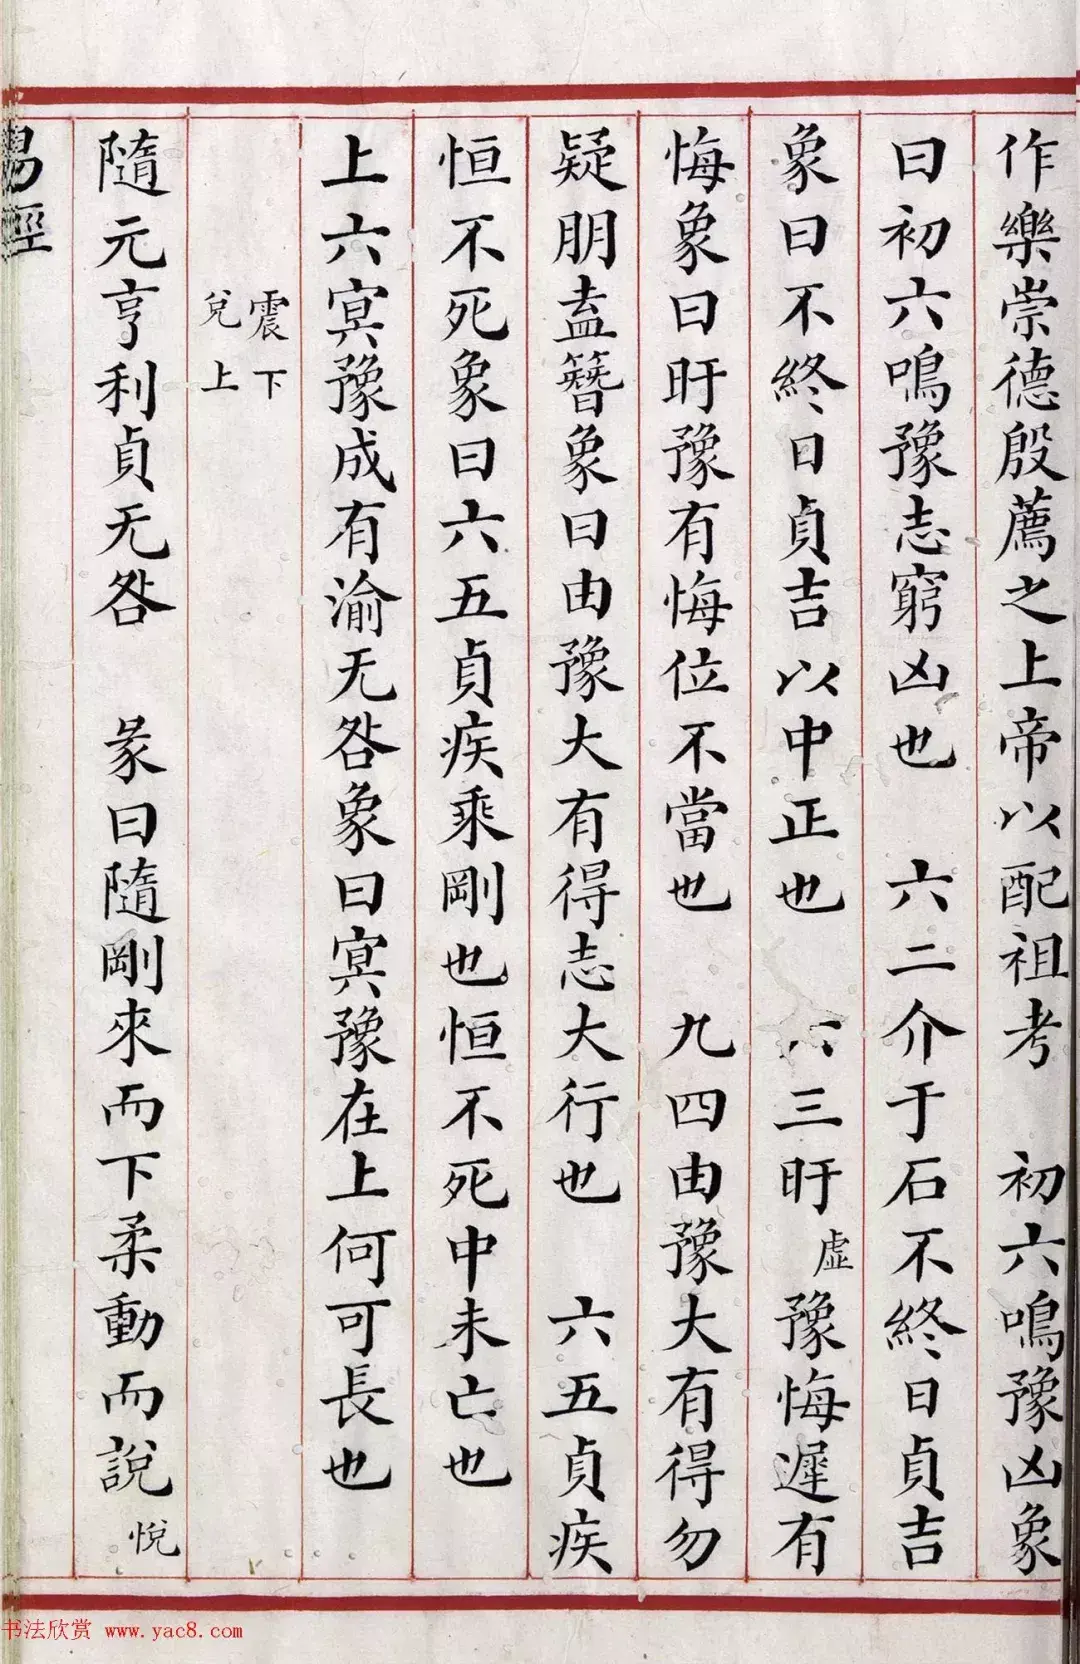 作樂崇德殷薦之上帝以配祖考　初六鳴豫凶象
曰初六鳴豫志窮凶也　六二介于石不終日貞吉
象曰不終日貞吉以中正也　六三盱虛豫悔遲有
悔象曰盱豫有悔位不當也　九四由豫大有得勿
疑朋盍簪象曰由豫大有得志大行也　六五貞疾
恒不死象曰六五貞疾乘剛也恒不死中未亡也
上六冥豫成有渝无咎象曰冥豫在上何可長也
震下
兌上
隨元亨利貞无咎　彖曰隨剛來而下柔動而說悅
易經
书法欣赏 www.yac8.com